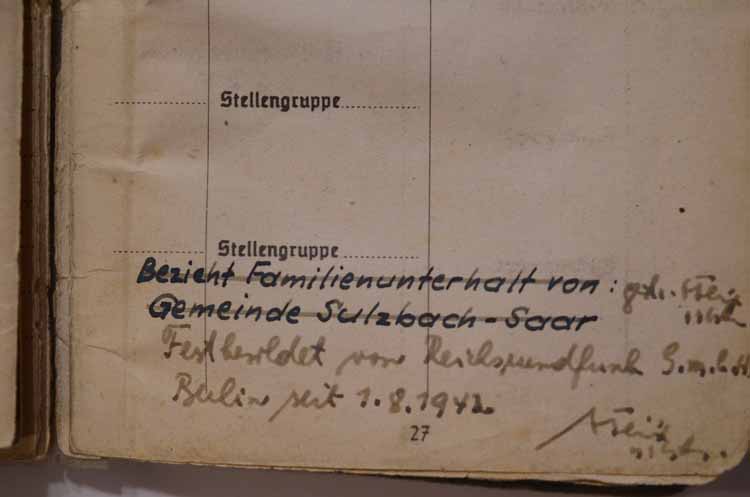 Stellengruppe
Stellengruppe
Bezieht Familienunterhalt von :
Gemeinde Sulzbach-Saar
Festbesoldet vom Reichsrundfunk G.m.b.H.
Berlin seit 1.8.1942
27